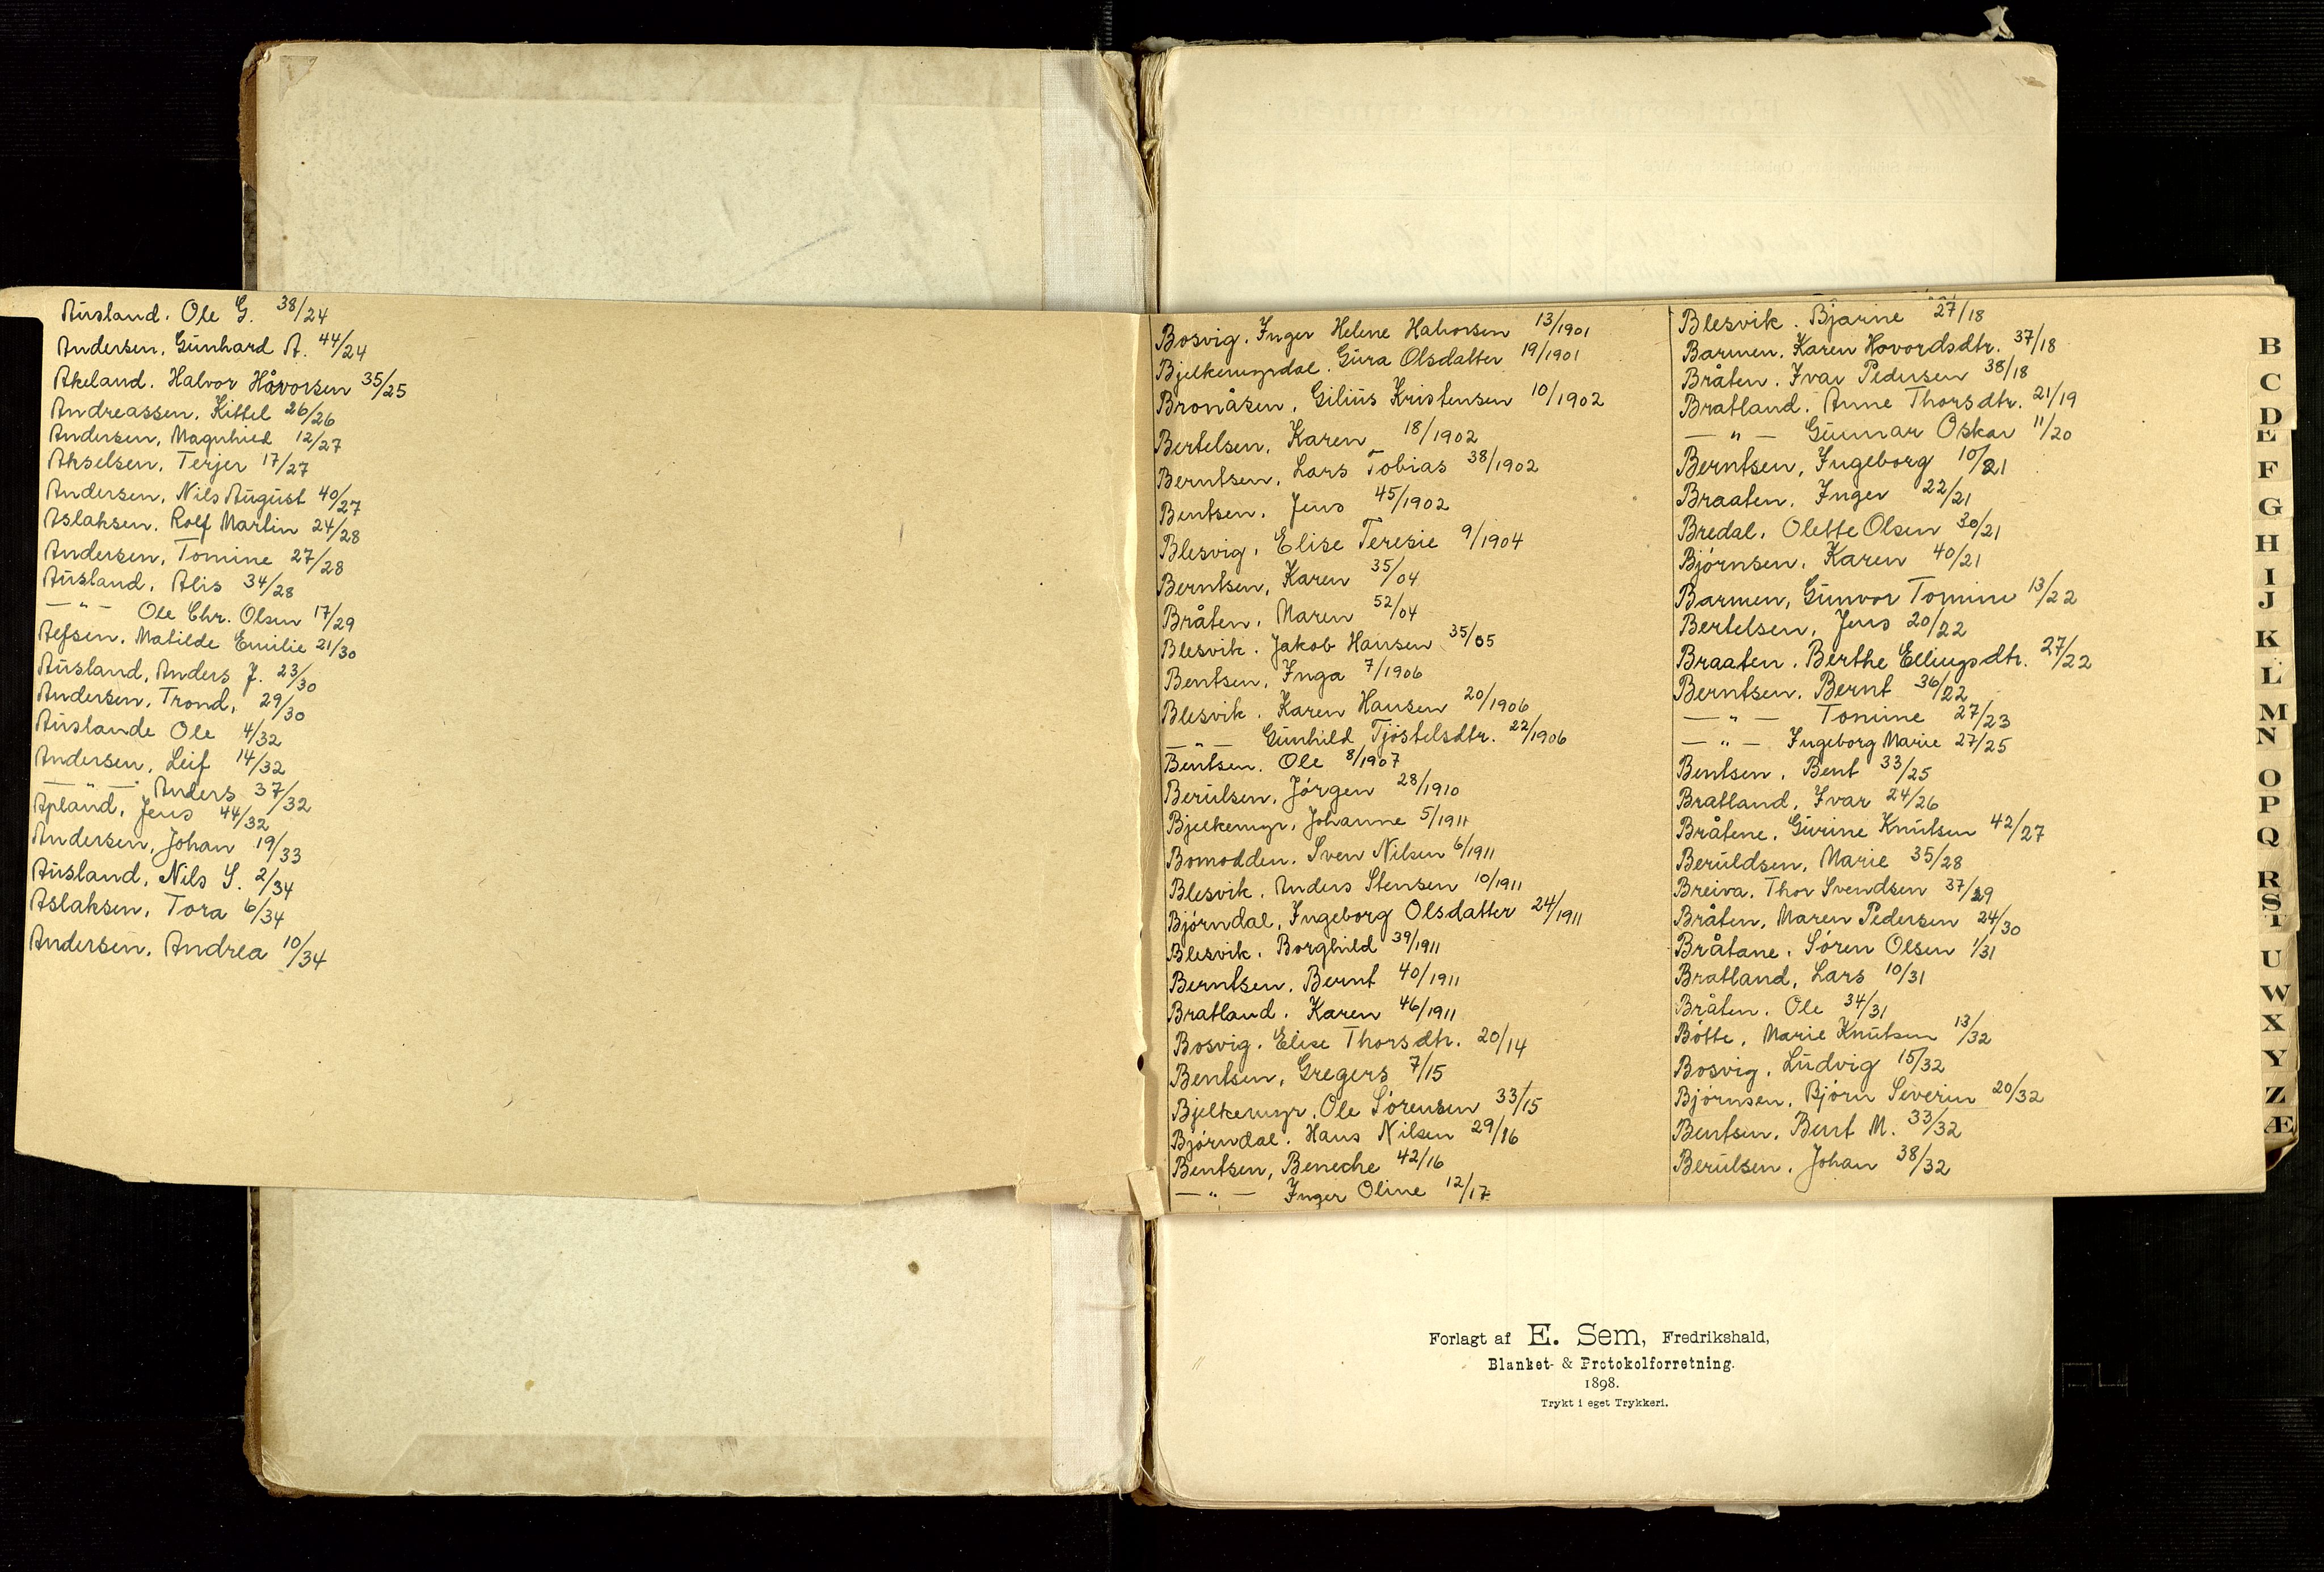 Ausland. Ole G. 38/24
Andersen. Gunhard A. 44/24
Akeland. Halvor Håvorsen 35/25
Andreassen. Kittel 26/26
Andersen, Magnhild 12/27
Akselsen, Terjer 17/27
Andersen, Nils August 40/27
Aslaksen. Rolf Martin 24/28
Andersen, Tomine 27/28
Ausland, Alis 34/28
— " — Ole Chr. Olsen 17/29
Aefsen. Matilde Emilie 21/30
Ausland, Anders J. 23/30
Andersen, Trond, 29/30
Auslande Ole 4/32
Andersen, Leif 14/32
— " — Anders 37/32
Apland, Jens 44/32
Andersen, Johan 19/33
Ausland, Nils S. 2/34
Aslaksen, Tora 6/34
Andersen, Andrea 10/34
Bosvig. Inger Helene Halvorsen 13/1901
Bjelkemyrdal. Gura Olsdatter 19/1901
Bronåsen, Gilius Kristensen 10/1902
Bertelsen, Karen 18/1902
Berntsen, Lars Tobias 38/1902
Bentsen. Jens 45/1902
Blesvig. Elise Teresie 9/1904
Berntsen, Karen 35/04
Bråten, Maren 52/04
Blesvik. Jakob Hansen 35/05
Bentsen, Inga 7/1906
Blesvik. Karen Hansen 20/1906
— " — Gunhild Tjöstelsdtr. 22/1906
Bentsen. Ole 8/1907
Berulsen, Jörgen 28/1910
Bjelkemyr, Johanne 5/1911
Bomodden. Sven Nilsen 6/1911
Blesvik. Anders Stensen 10/1911
Björndal, Ingeborg Olsdatter 24/1911
Blesvik. Borghild 39/1911
Berntsen. Bernt 40/1911
Bratland. Karen 46/1911
Bosvig. Elise Thorsdtr. 20/14
Bentsen, Gregers 7/15
Bjelkemyr, Ole Sörensen 33/15
Björndal. Hans Nilsen 29/16
Bentsen, Beneche 42/16
— " — Inger Oline 12/17
Blesvik. Bjarne 27/18
Barmen. Karen Hovordsdtr. 37/18
Bråten. Ivar Pedersen 38/18
Bratland. Anne Thorsdtr. 21/19
— " — Gunnar Oskar 11/20
Berntsen, Ingeborg 10/21
Braaten. Inger 22/21
Bredal. Olette Olsen 30/21
Björnsen. Karen 40/21
Barmen, Gunvor Tomine 13/22
Bertelsen, Jens 20/22
Braaten. Berthe Ellingsdtr. 27/22
Berntsen. Bernt 36/22
— " — Tomine 27/23
— " — Ingeborg Marie 27/25
Bentsen. Bent 33/25
Bratland, Ivar 24/26
Bråtene. Gurine Knutsen 42/27
Beruldsen, Marie 35/28
Breiva. Thor Svendsen 37/29
Bråten, Maren Pedersen 24/30
Bråtane. Sören Olsen 1/31
Bratland, Lars 10/31
Bråten. Ole 34/31
Bötte, Marie Knutsen 13/32
Bosvig, Ludvig 15/32
Björnsen. Björn Severin 20/32
Bentsen, Bent M. 33/32
Berulsen. Johan 38/32
B
C
D
E
F
G
H
I
J
K
L
M
N
O
P
Q
R
S
T
U
W
X
Y
Z
Æ
Forlagt af E. Sem, Fredrikshald,
Blanket- & Protokolforretning.
1898.
Trykt i eget Trykkeri.